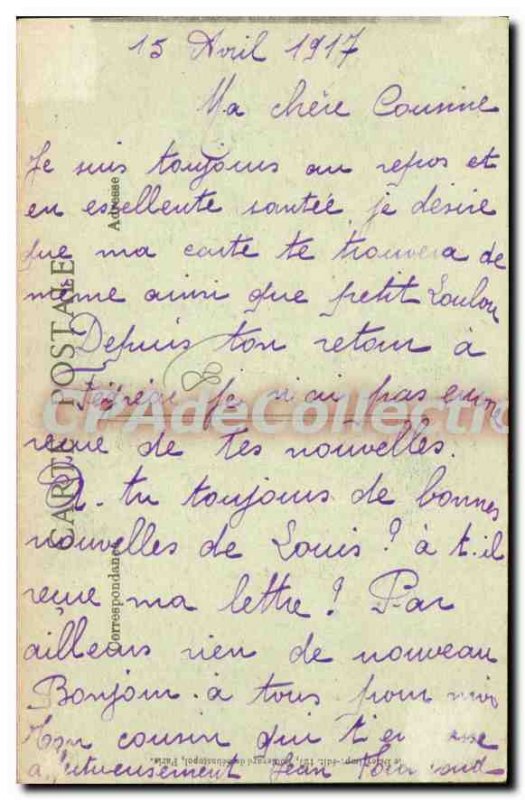 15 Avril 1917
Ma chère Cousine
Je suis toujours au repos et
en exellente santée je désire
que ma carte te trouvera de
même ainsi que petit Loulou
Depuis ton retour à
je n'ai pas encore
reçue de tes nouvelles.
A. tu toujours de bonnes
nouvelles de Louis? à t.il
reçue ma lettre? Par
ailleurs rien de nouveau
Bonjour à tous pour moi
Ton cousin qui t'embrasse
affectueusement Jean
CARTE POSTALE
Correspondance
Adresse
CPAdeCollection